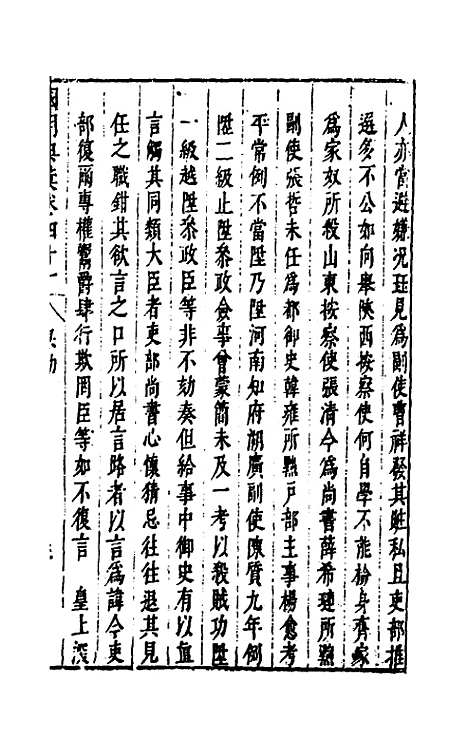 人亦當避嫌况珏見爲副使曹祥發其賍私且吏部推
選多不公如向舉陝西按察使何自學不能檢身齊家
爲家奴所殺山東按察使張清今爲尚書薛希璉所黜
副使張哲未任爲都御史韓雍所黜戶部主事楊愈考
平常例不當陞乃陞河南知府湖廣副使陳質九年例
陞二級止陞叅政僉事曾蒙簡未及一考以殺賊功陞
一級越陞叅政臣等非不劾奏但給事中御史有以直
言觸其同類大臣者吏部尚書心懷猜忌往往退其見
任之職鉗其欲言之口所以居言路者以言爲諱今吏
部復爾專權鬻爵肆行欺罔臣等如不復言　皇上深
國朝典彚卷四十一